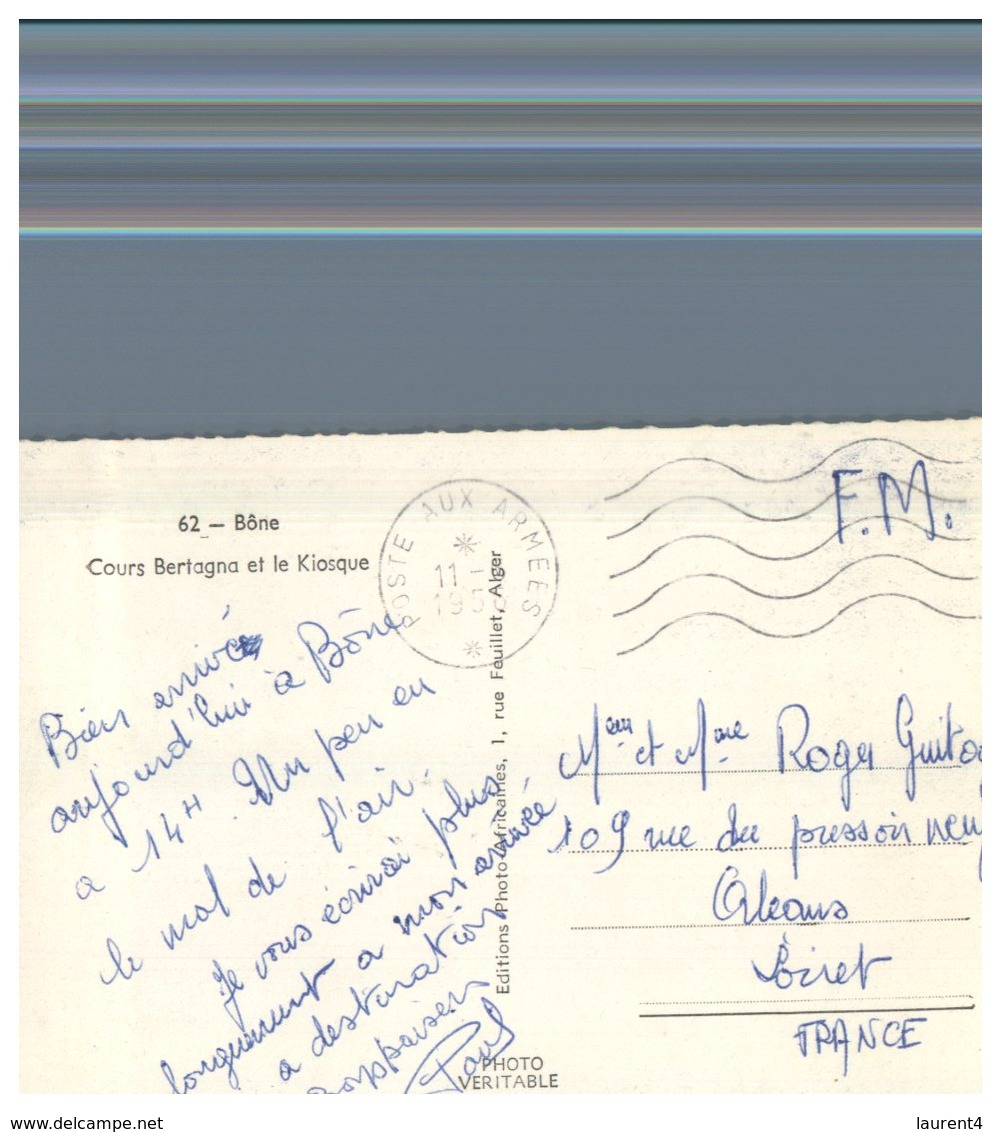 62 — Bône
Cours Bertagna et le Kiosque
POSTE AUX ARMEES
11 -
195
F.M.
Bien arrivé
aujourd'hui à Bône
a 14H. Un peu eu
le mal de l'air.
Je vous écrirai plus
longuement a mon arrivée
a destination
Paul
Editions Photo-Africaines, 1, rue Feuillet, Alger
PHOTO
VERITABLE
Mr et Mme Roger
109 rue du pressoir neuf
Orleans
Loiret
FRANCE
www.delcampe.net
laurent4